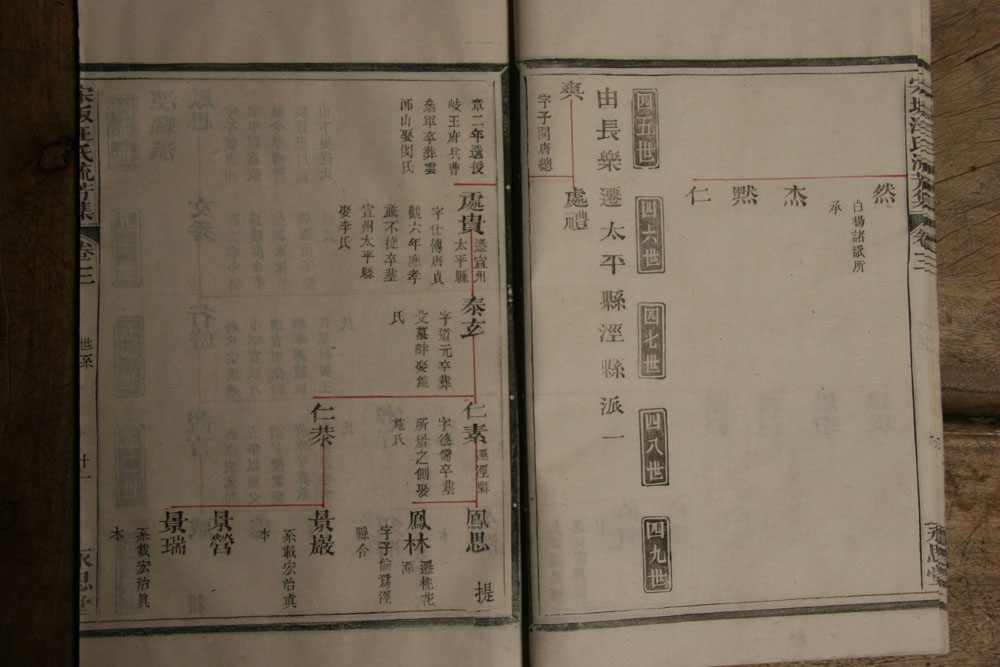 然
白楊諸派所
承
杰
黙
仁
四五世
四六世
四七世
四八世
四九世
由長樂遷太平縣涇縣派一
爽
字子開唐總
處禮
章二年選授
岐王府兵曹
參軍卒葬雲
師山娶閔氏
處貴
遷宣州
太平縣
字仕傳唐貞
觀六年應孝
廉不捷卒葬
宣州太平縣
娶李氏
泰玄
字道元卒葬
父墓畔娶
氏
仁素
遷涇縣
字德儒卒葬
所居之側娶
施氏
仁恭
鳳思
提
鳳林
遷桃花
潭
字子倫爲涇
縣令
景巖
系載宏治眞
本
景營
景瑞
系載宏治眞
本
卷二
世系
十一
永思堂